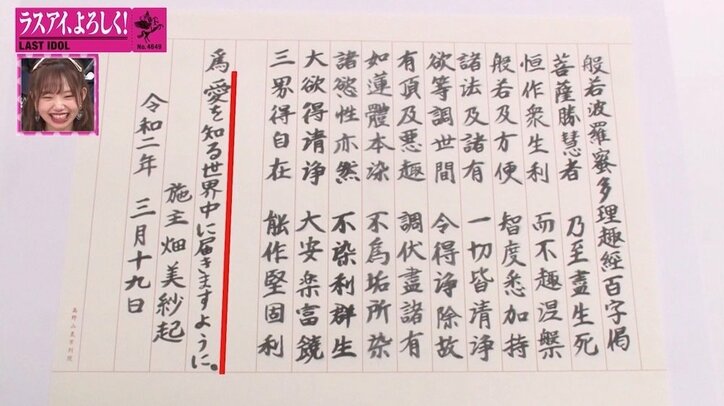 ラスアイ、よろしく!
LAST IDOL
No.4649
般若波羅蜜多理趣経百字偈
菩薩勝慧者 乃至盡生死
恒作衆生利 而不趣涅槃
般若及方便 智度悉加持
諸法及諸有 一切皆清浄
欲等調世間 令得浄除故
有頂及悪趣 調伏盡諸有
如蓮體本染 不為垢所染
諸慾性亦然 不染利群生
大欲得清浄 大安楽富饒
三界得自在 能作堅固利
為 愛を知る世界中に届きますように。
施主 畑美紗起
令和二年 三月十九日
高野山東京別院